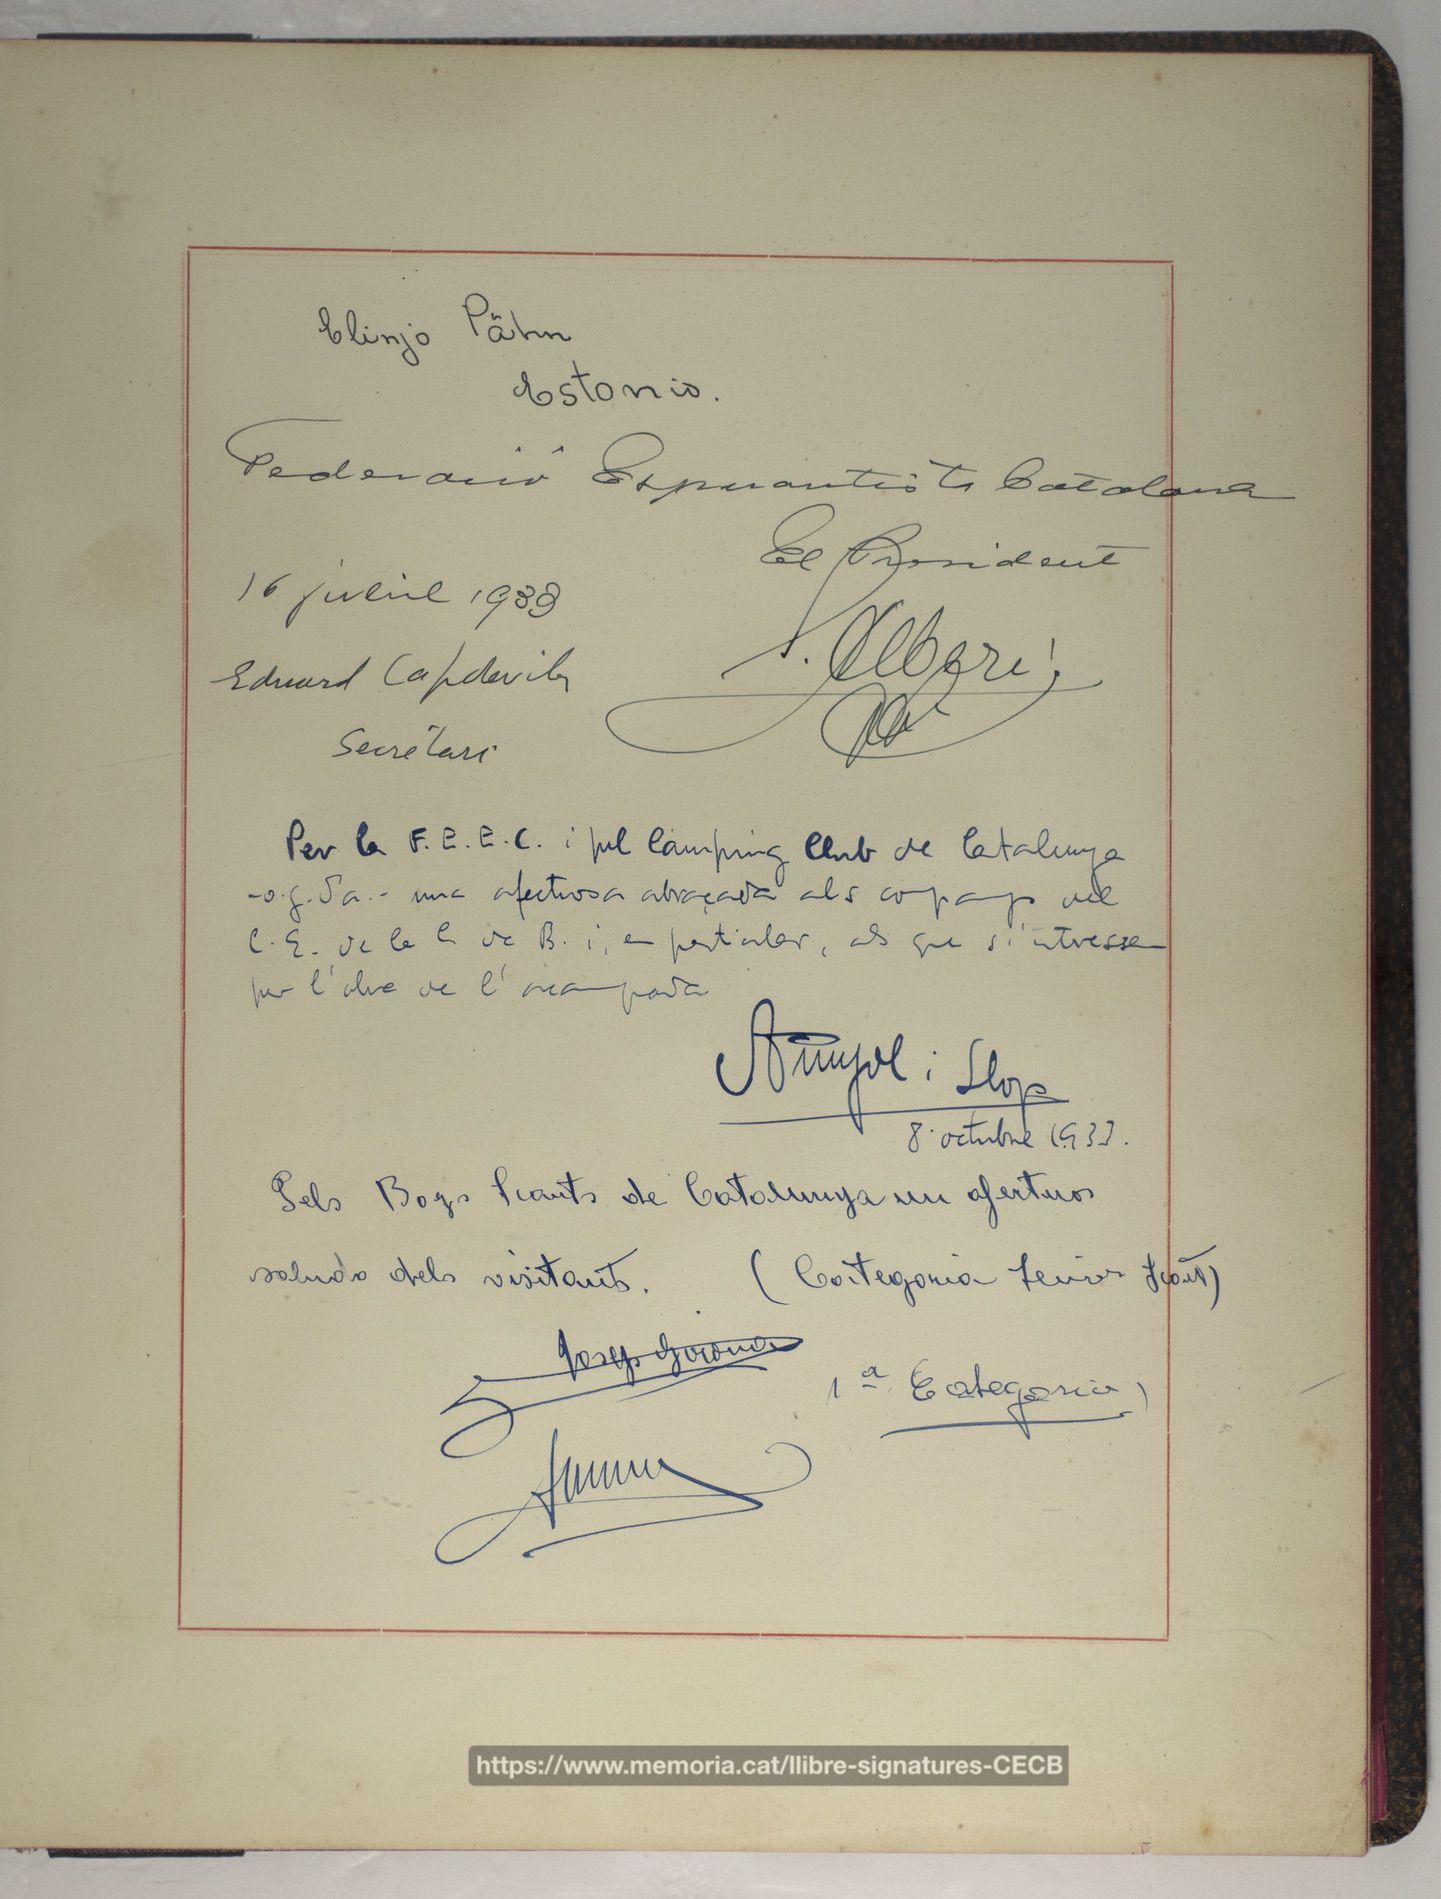 Elinjo Pähn
Estonio.
Federació Esperantista Catalana
El President
16 juliol 1933
S. Alberi
Eduard Capdevila
Secretari
Per la F.E.E.C. i pel Càmping Club de Catalunya
una afectuosa abraçada als companys del
C.E. de la C. de B. i, en particular, als que s'interessen
per l'obra de l'acampada
Amyol i Llop
8 octubre 1933.
Pels Boys Scouts de Catalunya un afectuos
saludo dels visitants. (Categoria Senior Scout)
Josep
1ª Categoria)
https://www.memoria.cat/llibre-signatures-CECB